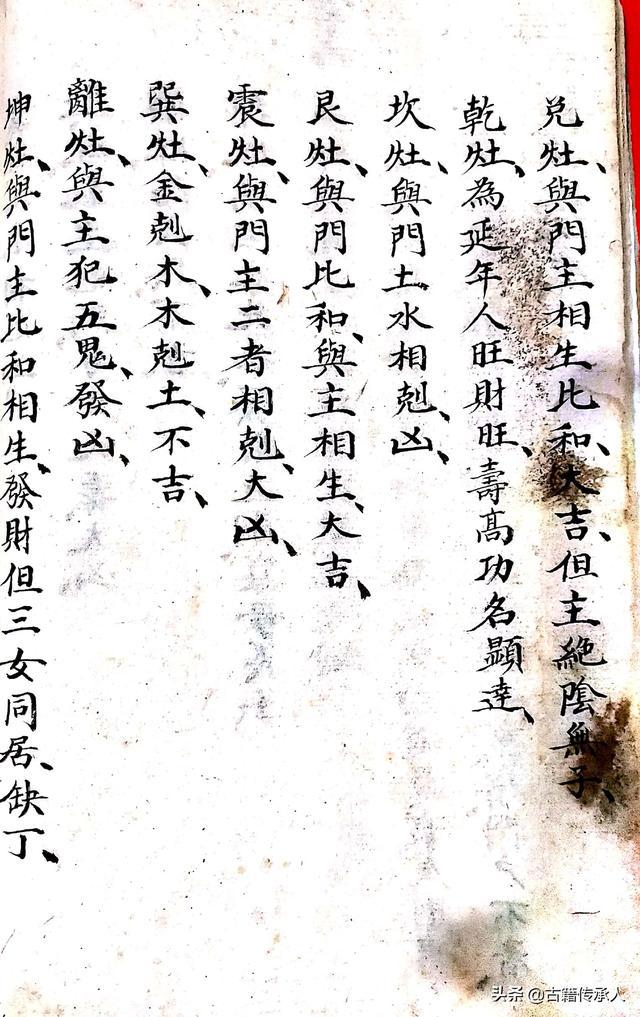 兌灶、與門主相生比和、大吉、但主絶陰無子、
乾灶、為延年人旺財旺、壽高功名顯達、
坎灶、與門土水相剋、凶、
艮灶、與門比和、與主相生、大吉、
震灶、與門主二者相剋、大凶、
巽灶、金剋木、木剋土、不吉、
離灶、與主犯五鬼、發凶、
坤灶、與門主比和相生、發財但三女同居、缺丁、
头条 @古籍传承人